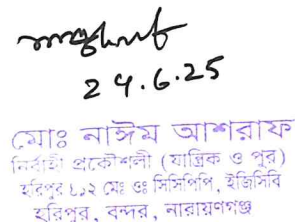 24.6.25
মোঃ নাঈম আশরাফ
নির্বাহী প্রকৌশলী (যান্ত্রিক ও পুর)
হরিপুর ৪১২ মেঃ ওঃ সিসিপিপি, ইজিসিবি
হরিপুর, বন্দর, নারায়ণগঞ্জ